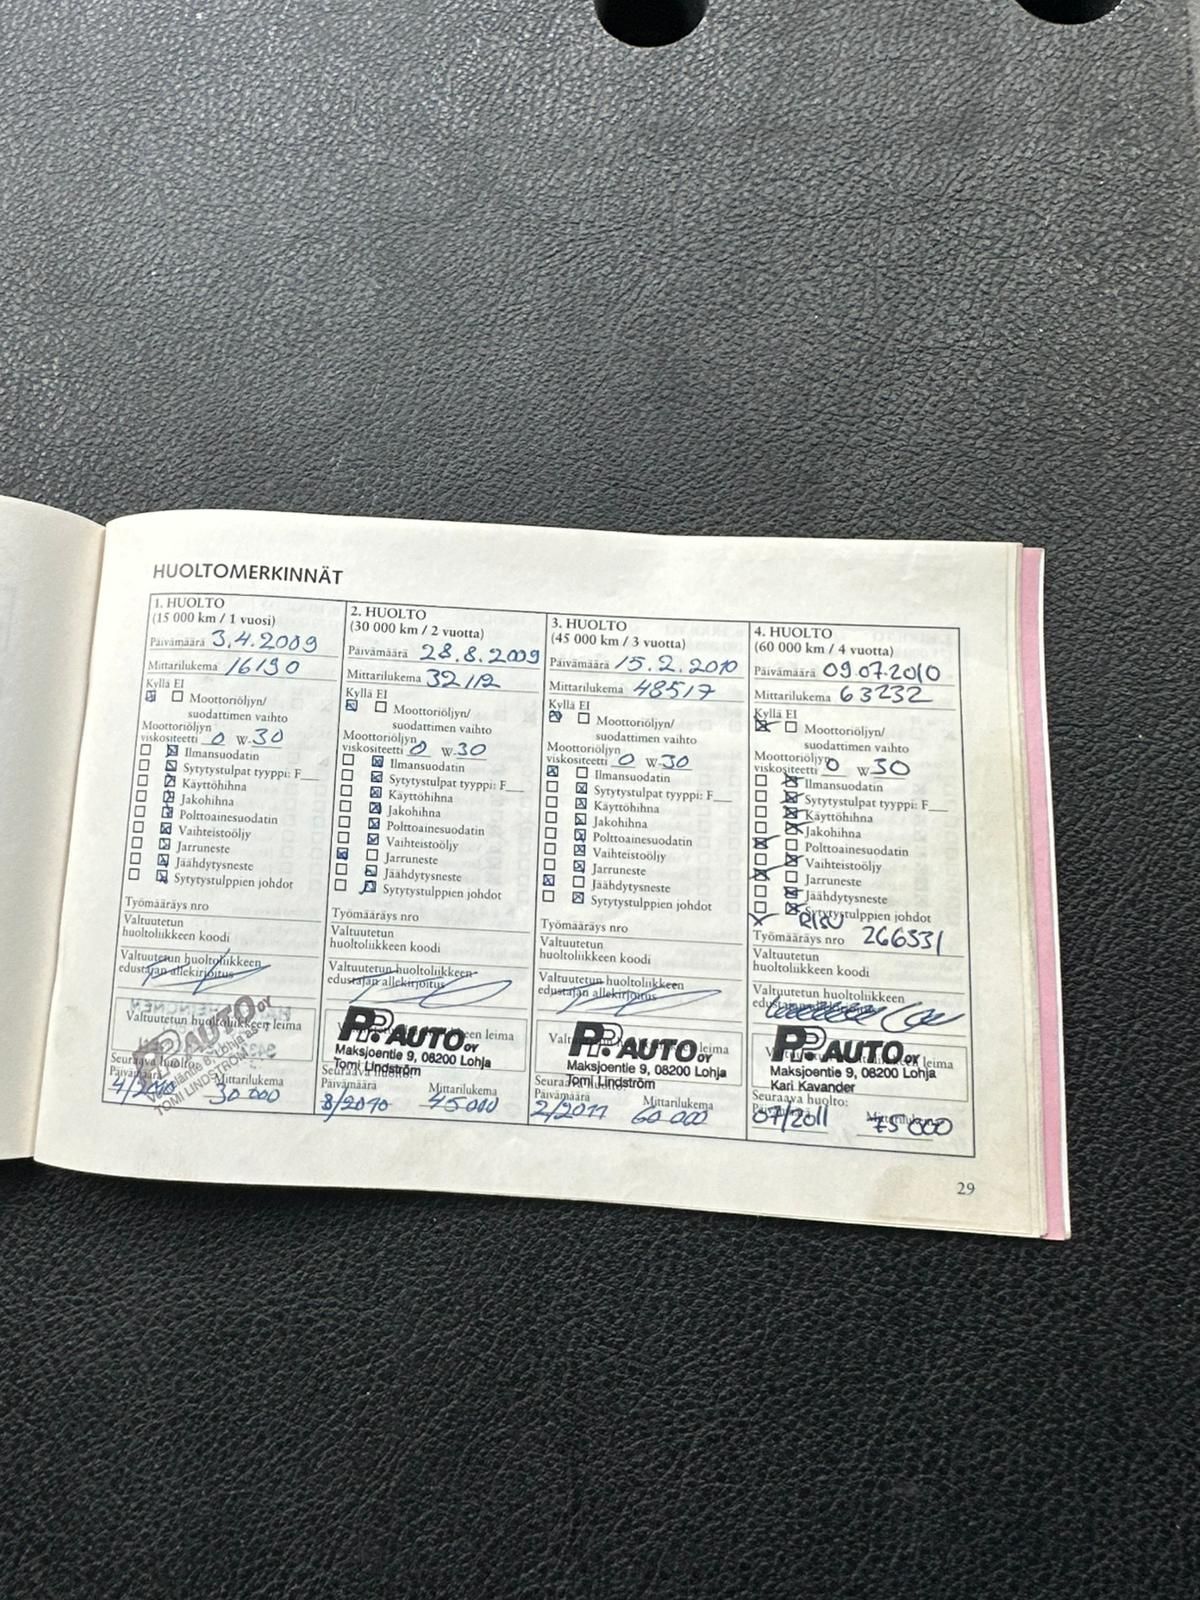 HUOLTOMERKINNÄT
1. HUOLTO
(15 000 km / 1 vuosi)
Päivämäärä 3.4.2009
Mittarilukema 16190
Kyllä EI
Moottoriöljyn/
suodattimen vaihto
Moottoriöljyn
viskositeetti 0 W-30
Ilmansuodatin
Sytytystulpat tyyppi: F__
Käyttöhihna
Jakohihna
Polttoainesuodatin
Vaihteistoöljy
Jarruneste
Jäähdytysneste
Sytytystulppien johdot
Työmääräys nro
Valtuutetun
huoltoliikkeen koodi
Valtuutetun huoltoliikkeen
edustajan allekirjoitus
Valtuutetun huoltoliikkeen leima
PP AUTO OY
TOMI LINDSTRÖM
Seuraava huolto:
Päivämäärä Mittarilukema
4/2010 30 000
2. HUOLTO
(30 000 km / 2 vuotta)
Päivämäärä 28.8.2009
Mittarilukema 32112
Kyllä EI
Moottoriöljyn/
suodattimen vaihto
Moottoriöljyn
viskositeetti 0 W-30
Ilmansuodatin
Sytytystulpat tyyppi: F__
Käyttöhihna
Jakohihna
Polttoainesuodatin
Vaihteistoöljy
Jarruneste
Jäähdytysneste
Sytytystulppien johdot
Työmääräys nro
Valtuutetun
huoltoliikkeen koodi
Valtuutetun huoltoliikkeen
edustajan allekirjoitus
PP AUTO OY
Maksjoentie 9, 08200 Lohja
Tomi Lindström
Seuraava huolto:
Päivämäärä Mittarilukema
8/2010 45 000
3. HUOLTO
(45 000 km / 3 vuotta)
Päivämäärä 15.2.2010
Mittarilukema 48517
Kyllä EI
Moottoriöljyn/
suodattimen vaihto
Moottoriöljyn
viskositeetti 0 W-30
Ilmansuodatin
Sytytystulpat tyyppi: F__
Käyttöhihna
Jakohihna
Polttoainesuodatin
Vaihteistoöljy
Jarruneste
Jäähdytysneste
Sytytystulppien johdot
Työmääräys nro
Valtuutetun
huoltoliikkeen koodi
Valtuutetun huoltoliikkeen
edustajan allekirjoitus
PP AUTO OY
Maksjoentie 9, 08200 Lohja
Tomi Lindström
Seuraava huolto:
Päivämäärä Mittarilukema
2/2011 60 000
4. HUOLTO
(60 000 km / 4 vuotta)
Päivämäärä 09.07.2010
Mittarilukema 63232
Kyllä EI
Moottoriöljyn/
suodattimen vaihto
Moottoriöljyn
viskositeetti 0 W 30
Ilmansuodatin
Sytytystulpat tyyppi: F__
Käyttöhihna
Jakohihna
Polttoainesuodatin
Vaihteistoöljy
Jarruneste
Jäähdytysneste
Sytytystulppien johdot
Työmääräys nro 266331
Valtuutetun
huoltoliikkeen koodi
Valtuutetun huoltoliikkeen
PP AUTO OY
Maksjoentie 9, 08200 Lohja
Kari Kavander
Seuraava huolto:
Päivämäärä Mittarilukema
07/2011 75 000
29